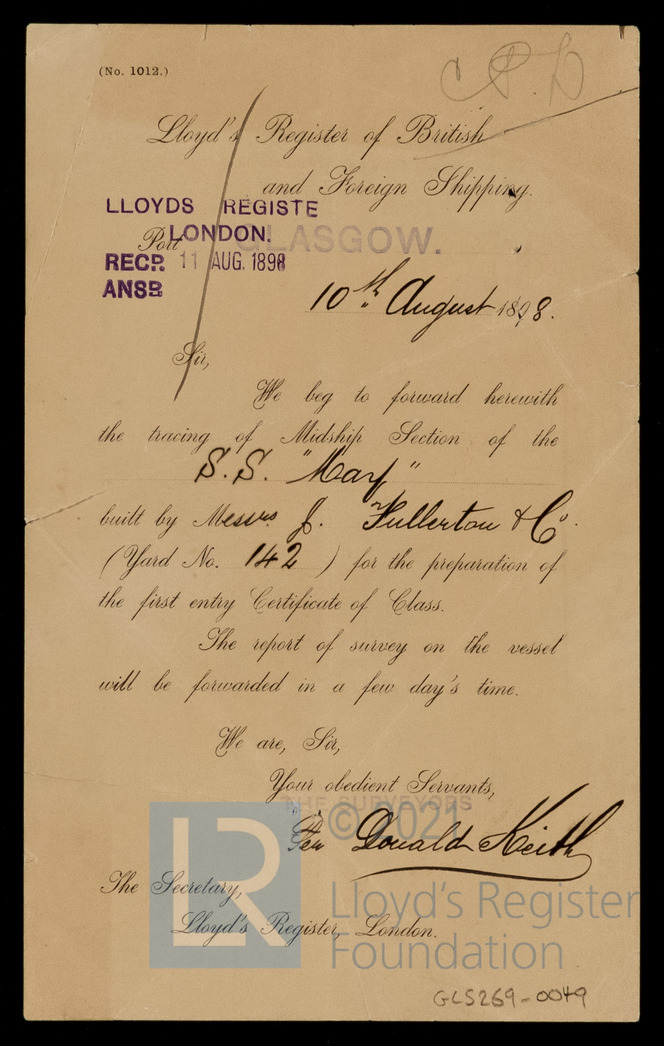 (No. 1012.)
Lloyd's Register of British
and Foreign Shipping.
LLOYDS REGISTE
LONDON.
Port GLASGOW.
RECD. 11 AUG. 1898
ANSD
10th August 1898.
Sir,
We beg to forward herewith
the tracing of Midship Section of the
S.S. "May"
built by Messrs J. Fullerton & Co.
(Yard No. 142) for the preparation of
the first entry Certificate of Class.
The report of survey on the vessel
will be forwarded in a few day's time.
We are, Sir,
Your obedient Servants,
THE SURVEYORS
Donald Keith
The Secretary,
Lloyd's Register, London.
LR
© 2021
Lloyd's Register
Foundation
GLS269-0049